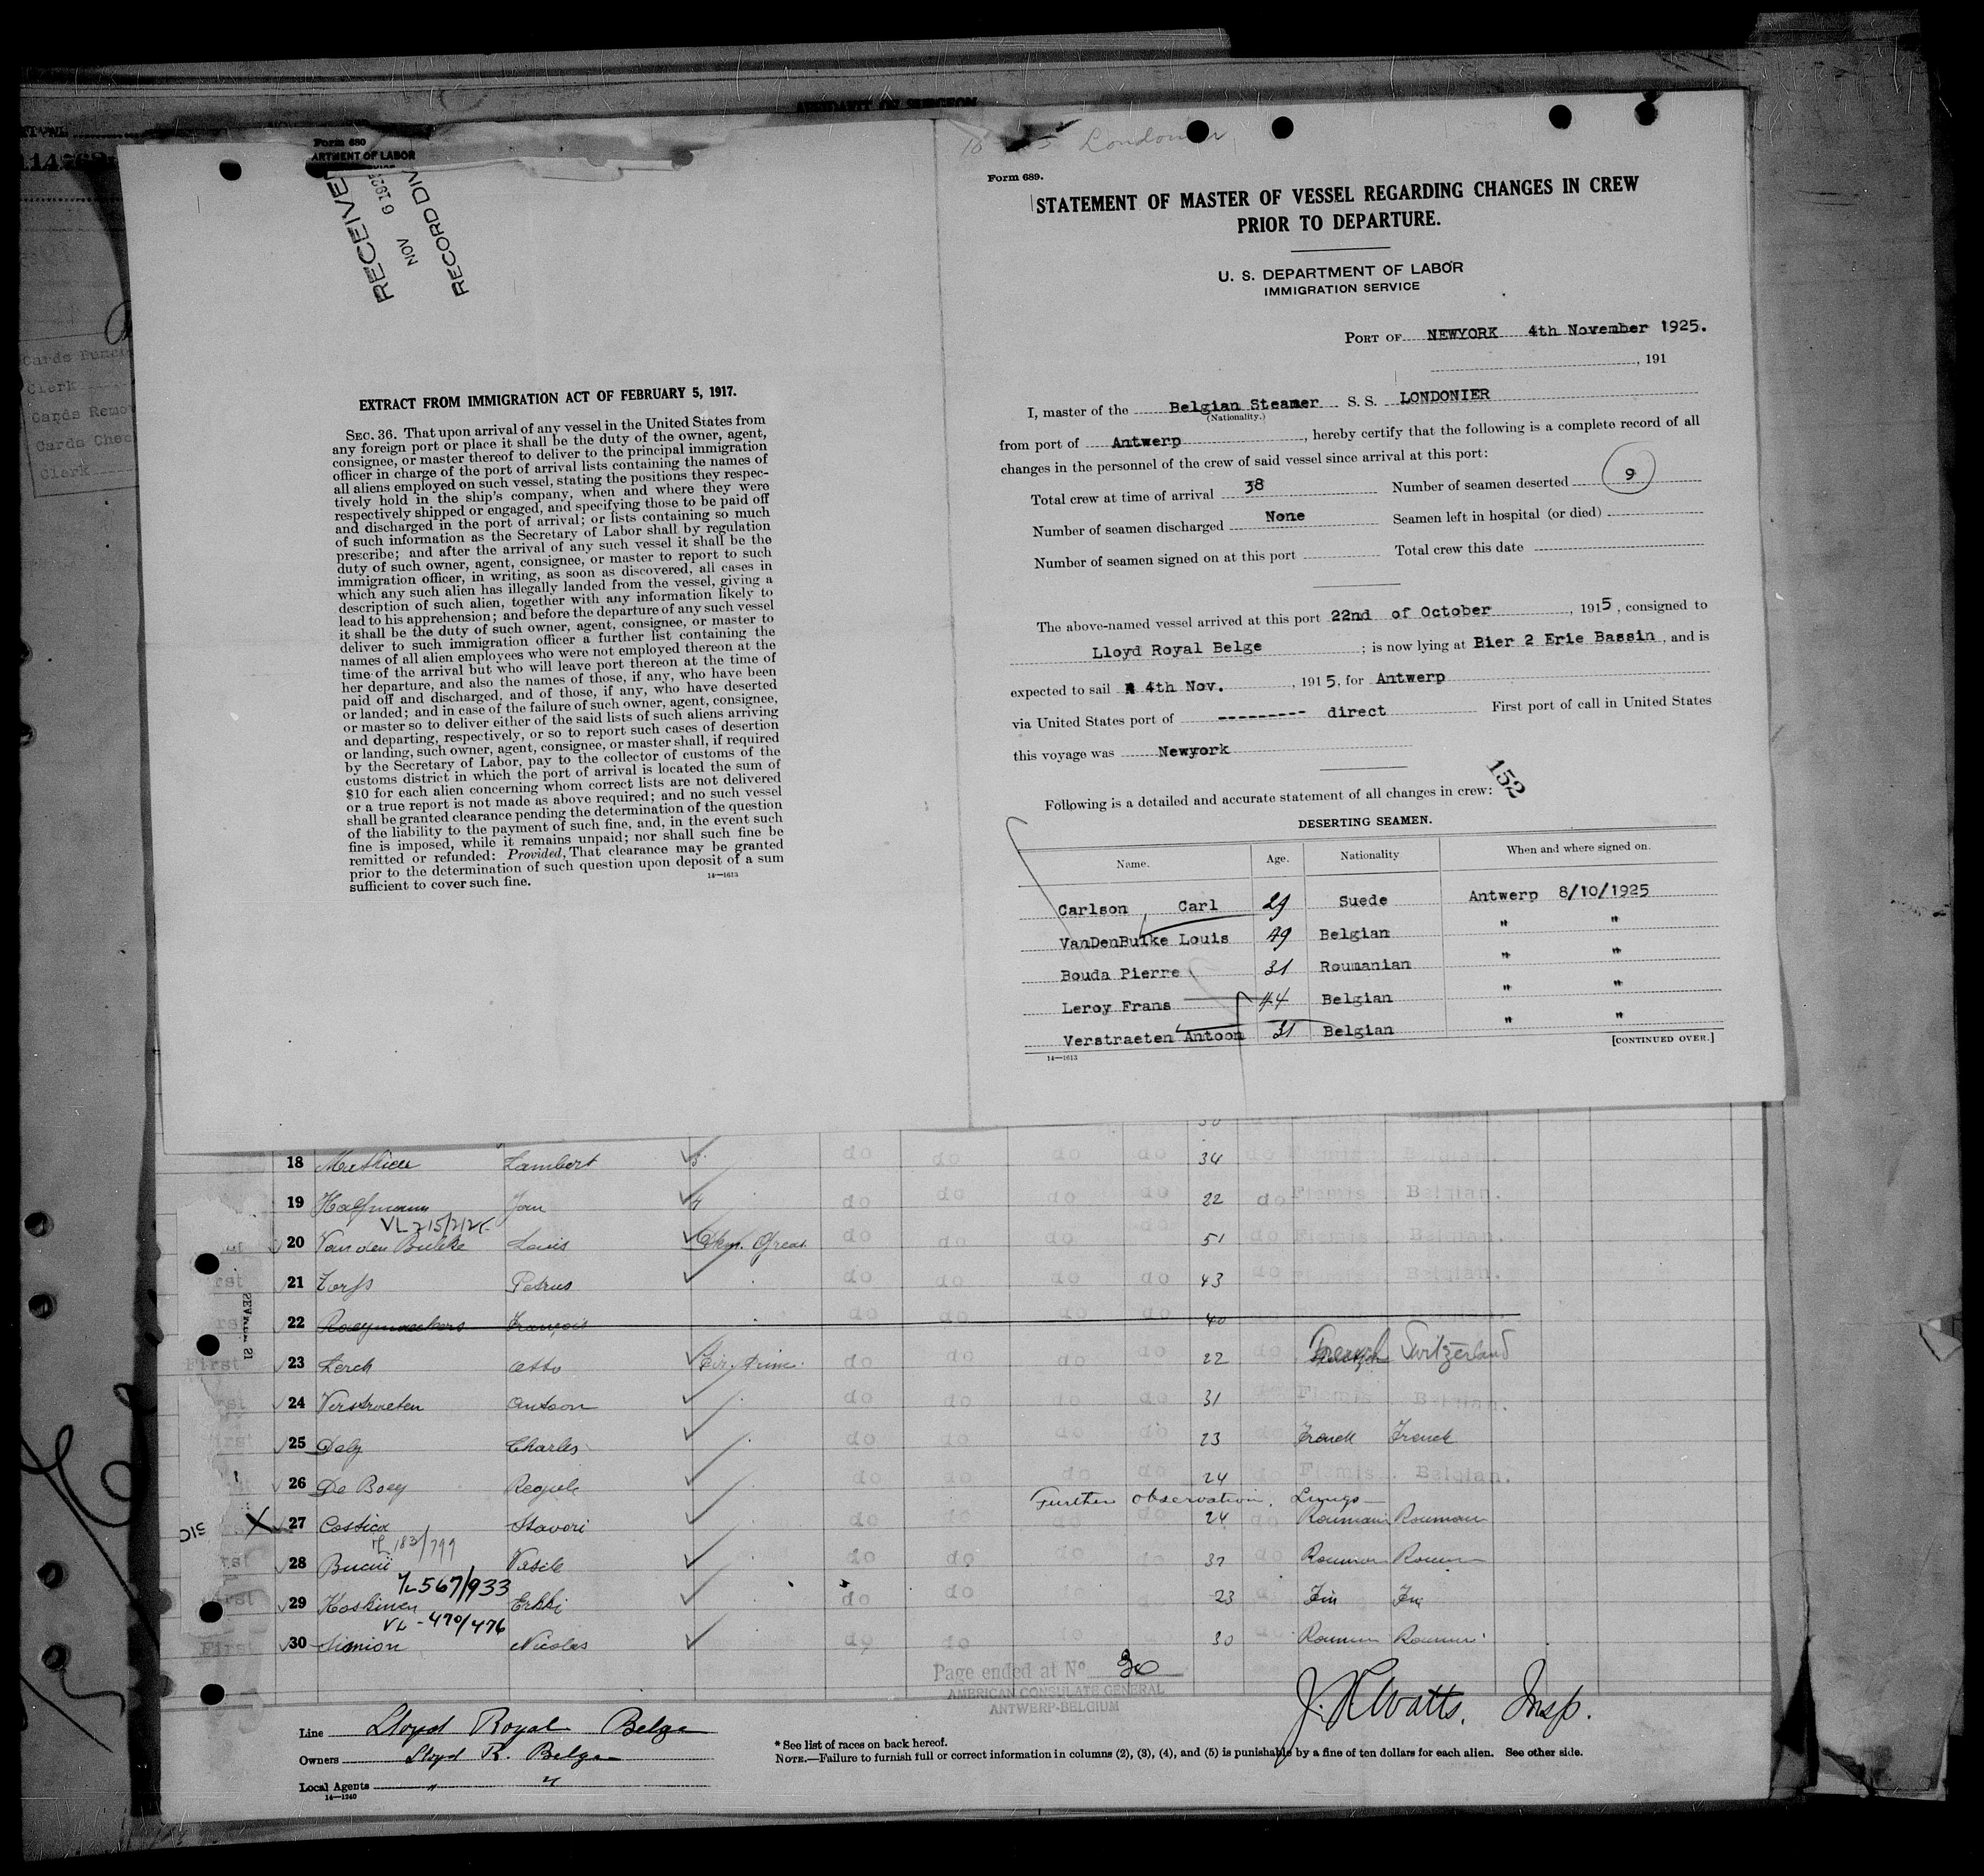 AFFIDAVIT OF SURGEON
Form 680
ARTMENT OF LABOR
RECEIVE
NOV 6 192
RECORD DIV
EXTRACT FROM IMMIGRATION ACT OF FEBRUARY 5, 1917.
SEC. 36. That upon arrival of any vessel in the United States from
any foreign port or place it shall be the duty of the owner, agent,
consignee, or master thereof to deliver to the principal immigration
officer in charge of the port of arrival lists containing the names of
all aliens employed on such vessel, stating the positions they respec-
tively hold in the ship's company, when and where they were
respectively shipped or engaged, and specifying those to be paid off
and discharged in the port of arrival; or lists containing so much
of such information as the Secretary of Labor shall by regulation
prescribe; and after the arrival of any such vessel it shall be the
duty of such owner, agent, consignee, or master to report to such
immigration officer, in writing, as soon as discovered, all cases in
which any such alien has illegally landed from the vessel, giving a
description of such alien, together with any information likely to
lead to his apprehension; and before the departure of any such vessel
it shall be the duty of such owner, agent, consignee, or master to
deliver to such immigration officer a further list containing the
names of all alien employees who were not employed thereon at the
time of the arrival but who will leave port thereon at the time of
her departure, and also the names of those, if any, who have been
paid off and discharged, and of those, if any, who have deserted
or landed; and in case of the failure of such owner, agent, consignee,
or master so to deliver either of the said lists of such aliens arriving
and departing, respectively, or so to report such cases of desertion
or landing, such owner, agent, consignee, or master shall, if required
by the Secretary of Labor, pay to the collector of customs of the
customs district in which the port of arrival is located the sum of
$10 for each alien concerning whom correct lists are not delivered
or a true report is not made as above required; and no such vessel
shall be granted clearance pending the determination of the question
of the liability to the payment of such fine, and, in the event such
fine is imposed, while it remains unpaid; nor shall such fine be
remitted or refunded: Provided, That clearance may be granted
prior to the determination of such question upon deposit of a sum
sufficient to cover such fine.
14—1613
Londonier
Form 689.
STATEMENT OF MASTER OF VESSEL REGARDING CHANGES IN CREW
PRIOR TO DEPARTURE.
U. S. DEPARTMENT OF LABOR
IMMIGRATION SERVICE
PORT OF NEWYORK 4th November 1925.
, 191
I, master of the Belgian Steamer S. S. LONDONIER
(Nationality.)
from port of Antwerp, hereby certify that the following is a complete record of all
changes in the personnel of the crew of said vessel since arrival at this port:
Total crew at time of arrival 38 Number of seamen deserted 9
Number of seamen discharged None Seamen left in hospital (or died)
Number of seamen signed on at this port Total crew this date
The above-named vessel arrived at this port 22nd of October, 1915, consigned to
Lloyd Royal Belge; is now lying at Bier 2 Erie Bassin, and is
expected to sail 4th Nov., 1915, for Antwerp
via United States port of --------- direct First port of call in United States
this voyage was Newyork
152
Following is a detailed and accurate statement of all changes in crew:
DESERTING SEAMEN.
Name. Age. Nationality When and where signed on.
Carlson, Carl 29 Suede Antwerp 8/10/1925
VanDenBulke Louis 49 Belgian " "
Bouda Pierre 31 Roumanian " "
Leroy Frans 44 Belgian " "
Verstraeten Antoon 31 Belgian " "
14—1613 [CONTINUED OVER.]
18 Mathieu Lambert do do do do 34 do Flemis Belgian.
19 Halfmann Jan 4 do do do do 22 do Flemis Belgian.
VL 215/212
20 Van den Bulke Louis do do do 51 do Flemis Belgian.
21 Torfs Petrus do do do do 43 do Flemis Belgian.
22 Raeymaekers François do do do do 40
23 Lerch Otto do do do do 22 do French Switzerland
24 Verstraeten Antoon do do do do 31 Flemis Belgian.
25 Daly Charles do do do do 23 French French
26 De Boey do do do do 24 do Flemis Belgian.
Further observation. Lungs
27 Cossica Stavori do do do 24 do
183/799
28 Vasile do do do do
VL 567/933
29 Koskinen Erkki do do do 23 Fin Fin
VL-470/476
30 Simion Nicolas do do do 30
Page ended at No 30
AMERICAN CONSULATE GENERAL
ANTWERP-BELGIUM
J. R. Watts, Insp.
Line Lloyd Royal Belge
Owners Lloyd R. Belge
Local Agents " "
14—1240
* See list of races on back hereof.
NOTE.—Failure to furnish full or correct information in columns (2), (3), (4), and (5) is punishable by a fine of ten dollars for each alien. See other side.